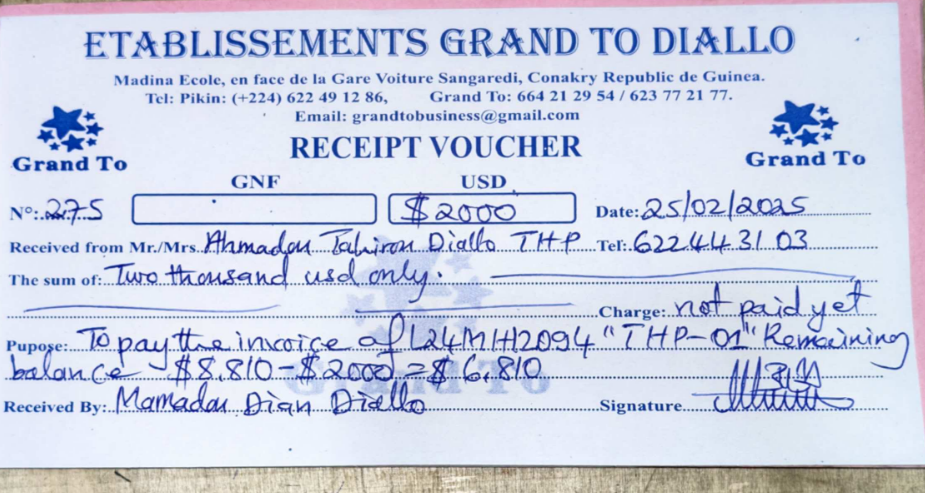 ETABLISSEMENTS GRAND TO DIALLO
Madina Ecole, en face de la Gare Voiture Sangaredi, Conakry Republic de Guinea.
Tel: Pikin: (+224) 622 49 12 86, Grand To: 664 21 29 54 / 623 77 21 77.
Email: grandtobusiness@gmail.com
Grand To RECEIPT VOUCHER Grand To
GNF USD
N°:. 275 $ 2000 Date: 25/02/2025
Received from Mr./Mrs. Ahmadou Tahirou Diallo THP Tel: 622 44 31 03
The sum of: Two thousand usd only.
Charge: not paid yet
Pupose: To pay the invoice of L24MH2094 "THP-01" Remaining
balance $8,810 - $2000 = $6,810
Received By: Mamadou Dian Diallo Signature